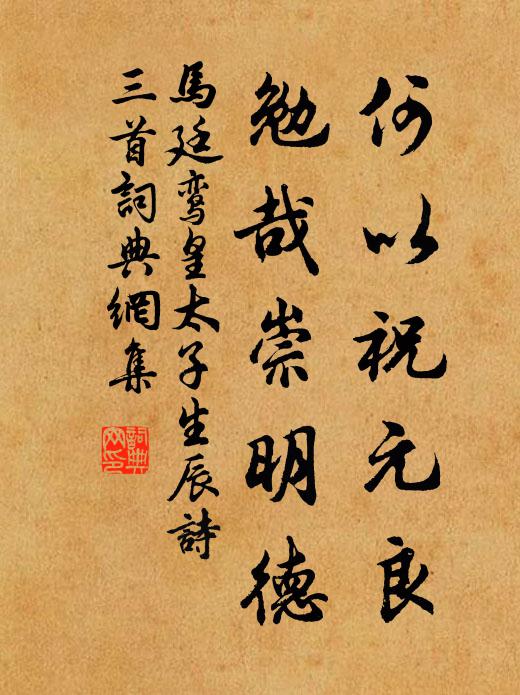 何以祝元良
勉哉崇明德
馬廷鸾皇太子生辰詩
三首詞典網集
詞典网印